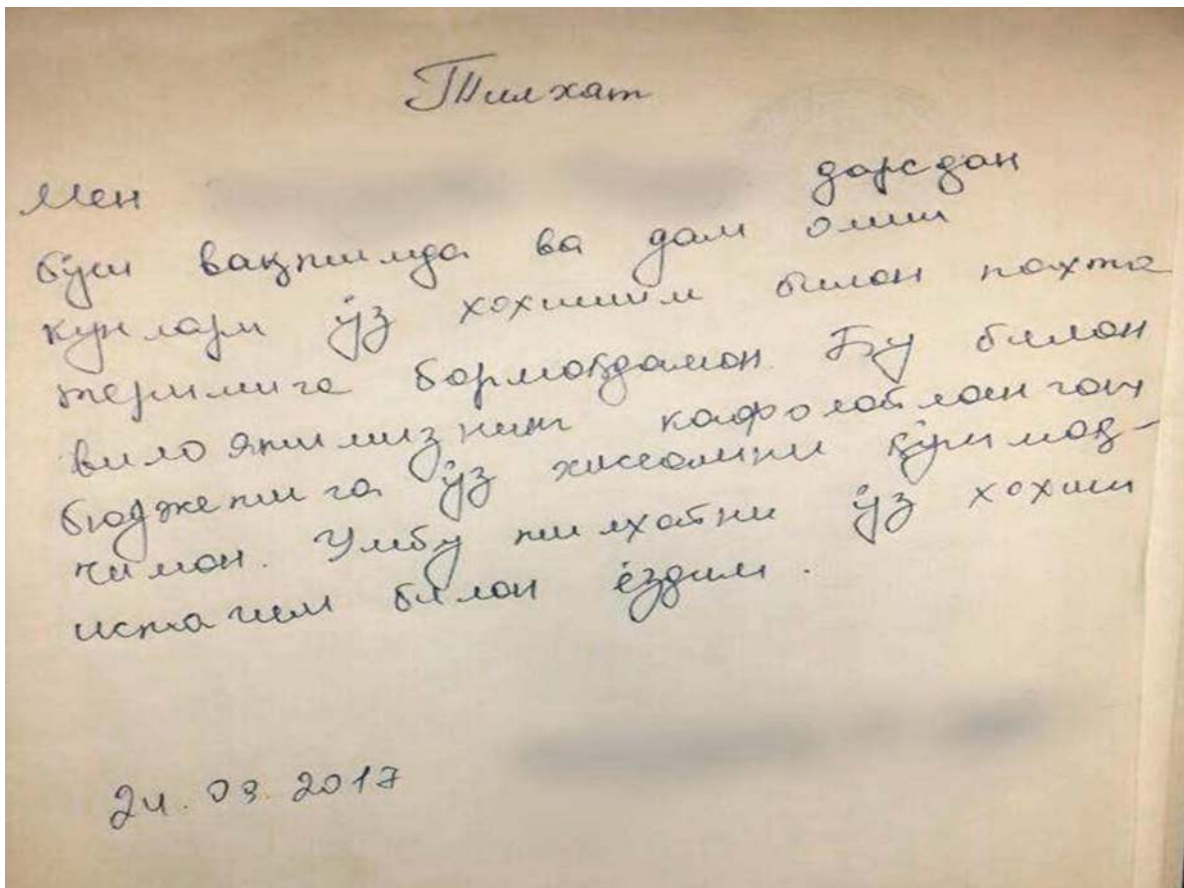 Тилхат
Мен дарсдан
бўш вақтимда ва дам олиш
кунлари ўз хохишим билан пахта
теримига бормоқдаман. Бу билан
вилоятимизнинг кафолатланган
бюджетига ўз хиссамни қўшмоқ-
чиман. Ушбу тилхатни ўз хохиш
истагим билан ёздим.
24.09.2017